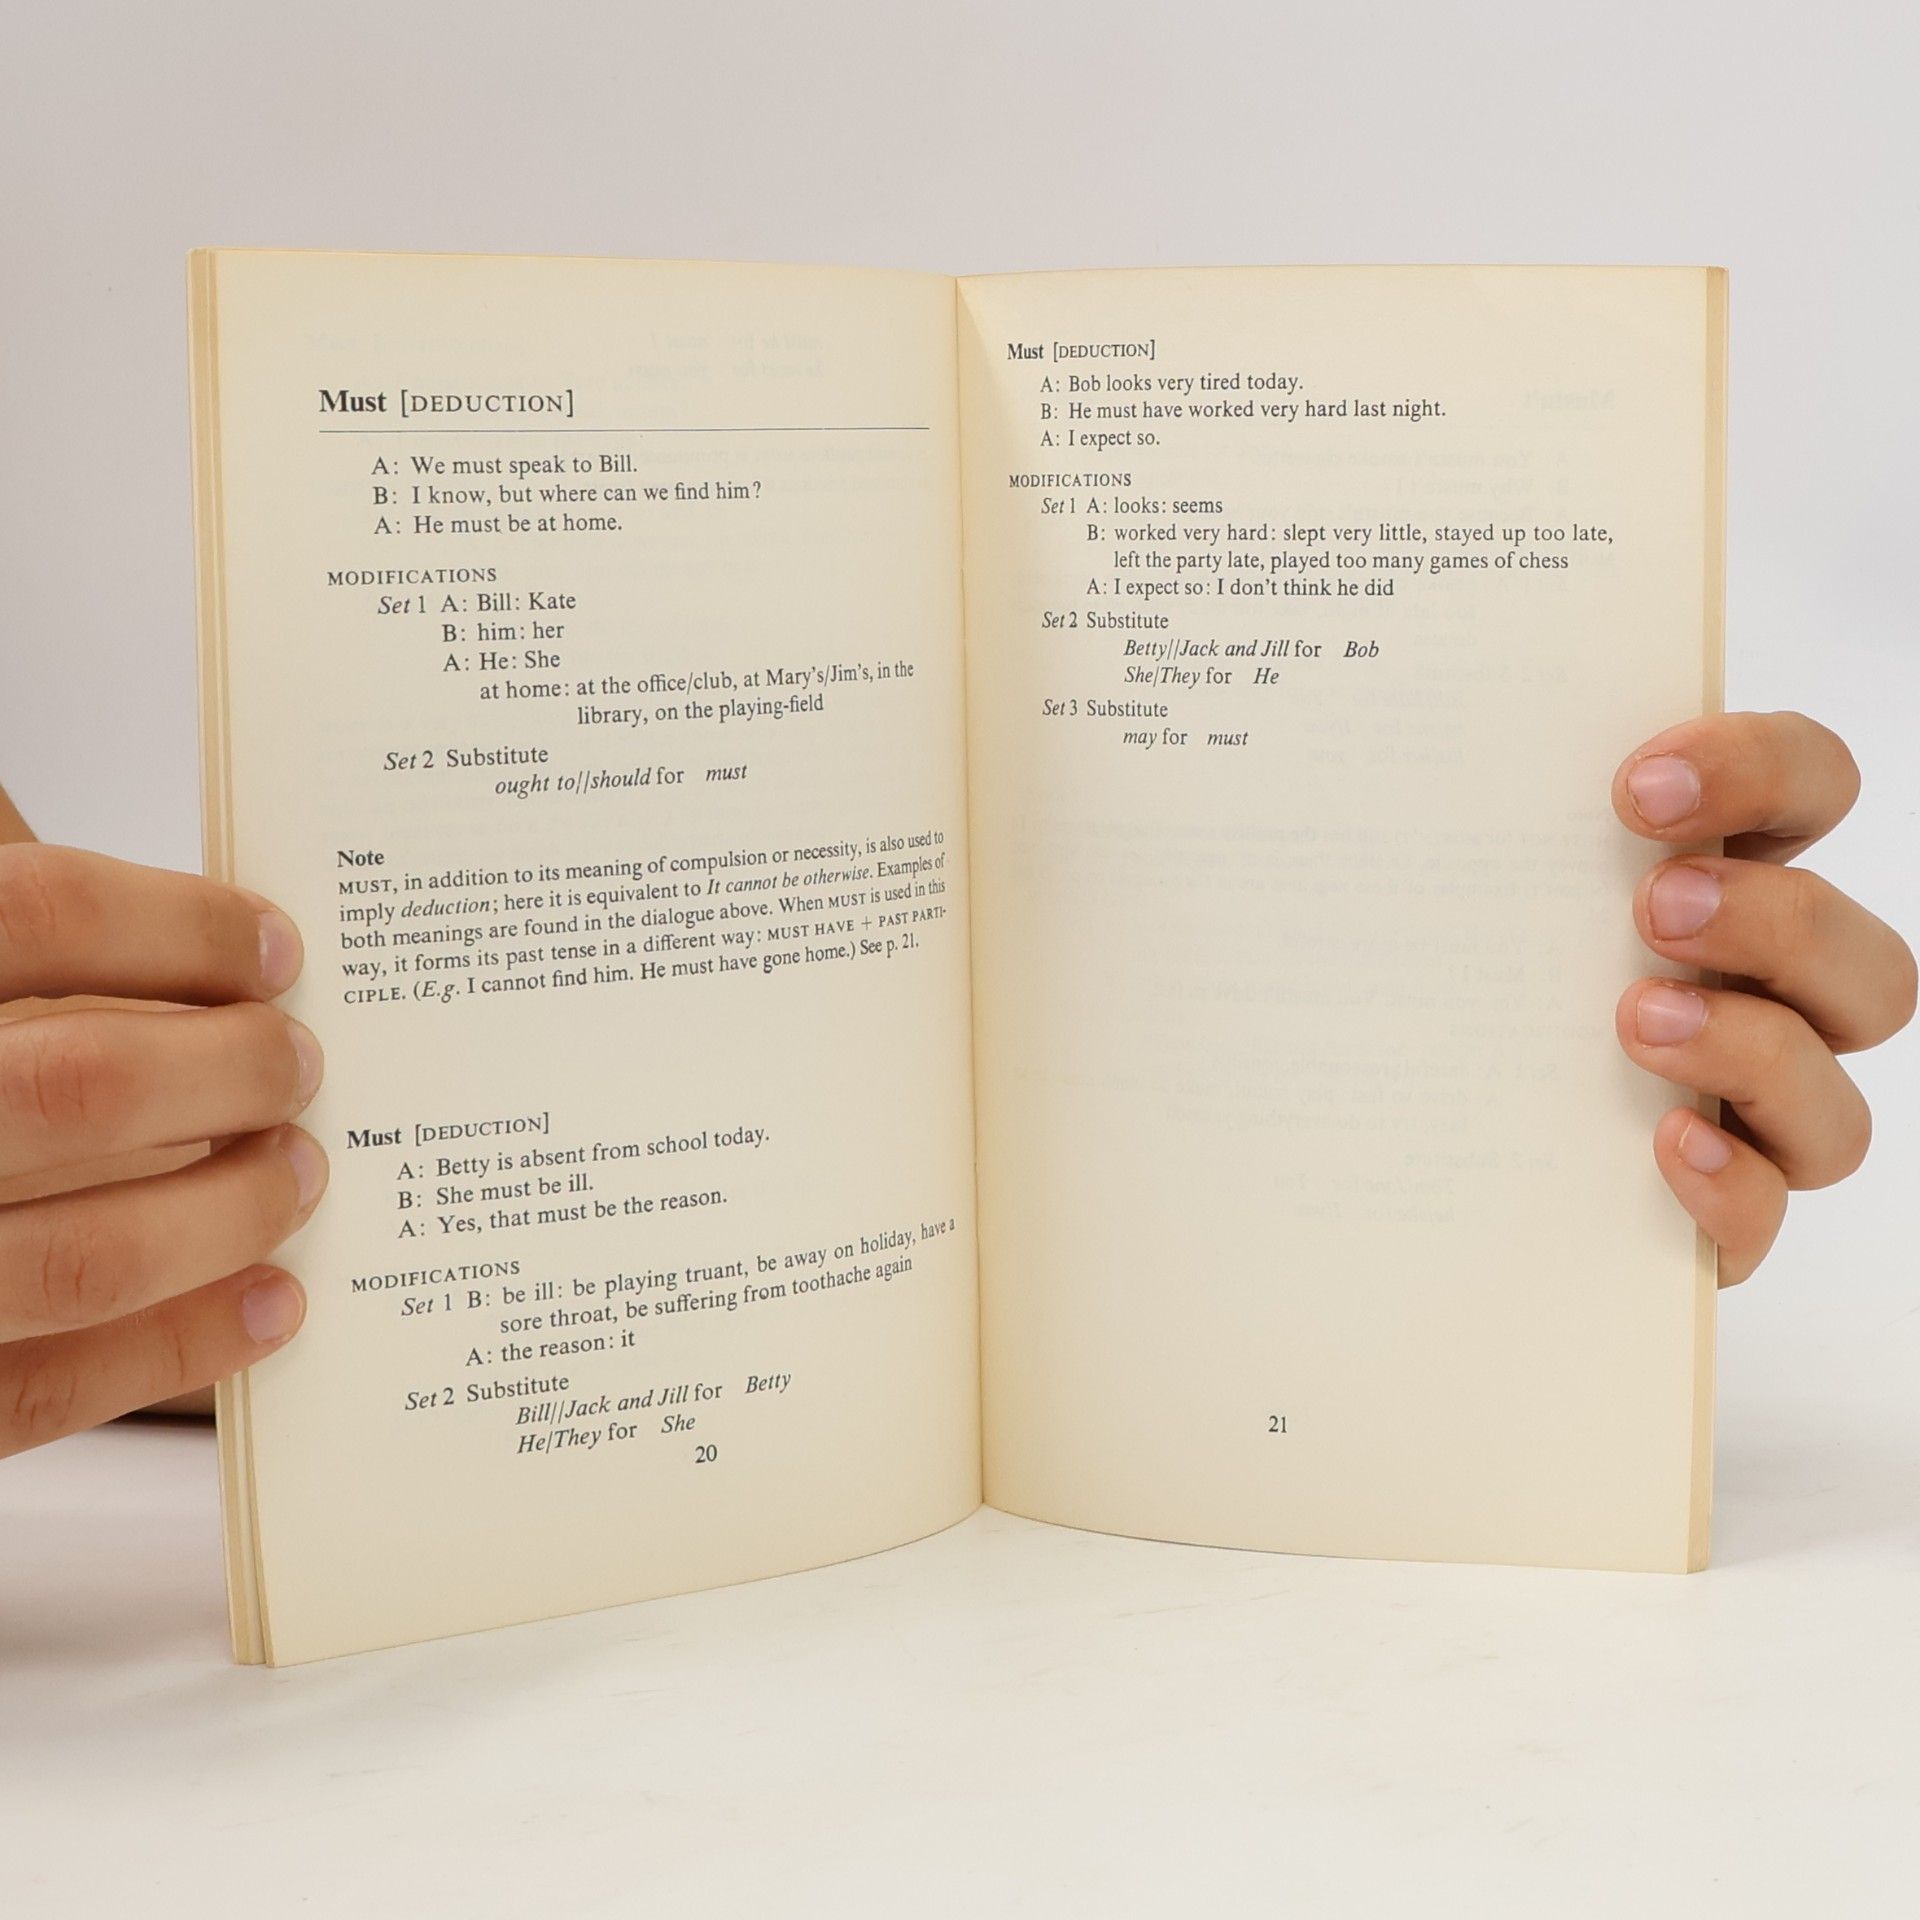 Must [DEDUCTION]
A: We must speak to Bill.
B: I know, but where can we find him?
A: He must be at home.
MODIFICATIONS
Set 1 A: Bill: Kate
B: him: her
A: He: She
at home: at the office/club, at Mary's/Jim's, in the
library, on the playing-field
Set 2 Substitute
ought to//should for must
Note
MUST, in addition to its meaning of compulsion or necessity, is also used to
imply deduction; here it is equivalent to It cannot be otherwise. Examples of
both meanings are found in the dialogue above. When MUST is used in this
way, it forms its past tense in a different way: MUST HAVE + PAST PARTI-
CIPLE. (E.g. I cannot find him. He must have gone home.) See p. 21.
Must [DEDUCTION]
A: Betty is absent from school today.
B: She must be ill.
A: Yes, that must be the reason.
MODIFICATIONS
Set 1 B: be ill: be playing truant, be away on holiday, have a
sore throat, be suffering from toothache again
A: the reason: it
Set 2 Substitute
Bill//Jack and Jill for Betty
He/They for She
20
Must [DEDUCTION]
A: Bob looks very tired today.
B: He must have worked very hard last night.
A: I expect so.
MODIFICATIONS
Set 1 A: looks: seems
B: worked very hard: slept very little, stayed up too late,
left the party late, played too many games of chess
A: I expect so: I don't think he did
Set 2 Substitute
Betty//Jack and Jill for Bob
She/They for He
Set 3 Substitute
may for must
21